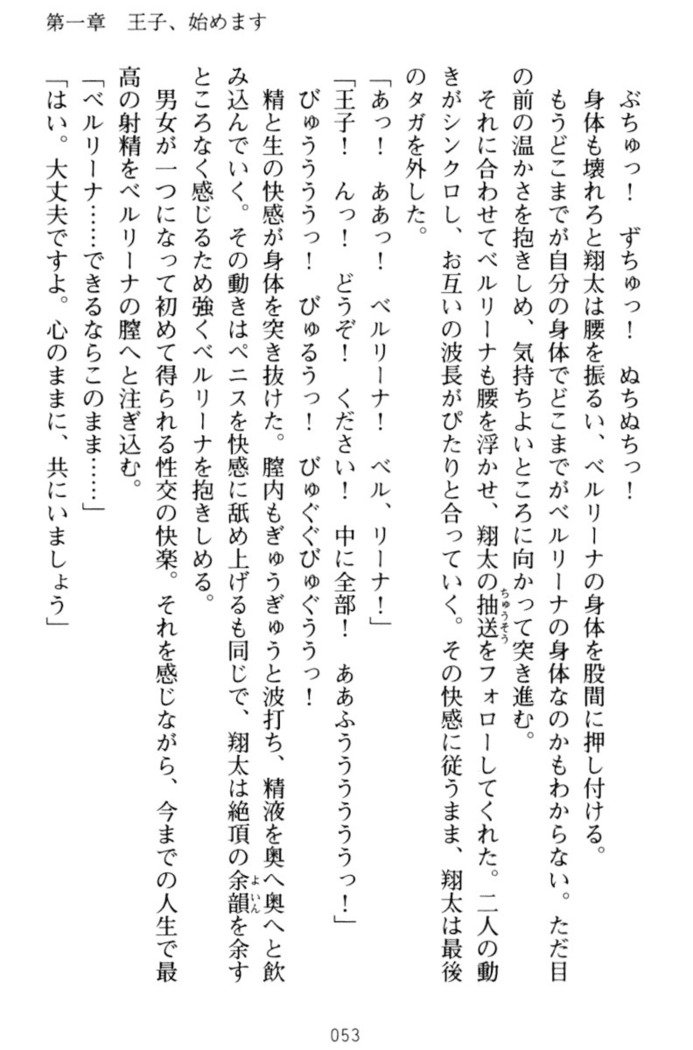 第一章　王子、始めます
ぶちゅっ！　ずちゅっ！　ぬちぬちっ！
身体も壊れろと翔太は腰を振るい、ベルリーナの身体を股間に押し付ける。
もうどこまでが自分の身体でどこまでがベルリーナの身体なのかもわからない。ただ目
の前の温かさを抱きしめ、気持ちよいところに向かって突き進む。
それに合わせてベルリーナも腰を浮かせ、翔太の抽送ちゅうそうをフォローしてくれた。二人の動
きがシンクロし、お互いの波長がぴたりと合っていく。その快感に従うまま、翔太は最後
のタガを外した。
「あっ！　ああっ！　ベルリーナ！　ベル、リーナ！」
「王子！　んっ！　どうぞ！　ください！　中に全部！　ああふううううううっ！」
びゅうううっ！　びゅるうっ！　びゅぐぐびゅぐううっ！
精と生の快感が身体を突き抜けた。膣内もぎゅうぎゅうと波打ち、精液を奥へ奥へと飲
み込んでいく。その動きはペニスを快感に舐め上げるも同じで、翔太は絶頂の余韻よいんを余す
ところなく感じるため強くベルリーナを抱きしめる。
男女が一つになって初めて得られる性交の快楽。それを感じながら、今までの人生で最
高の射精をベルリーナの膣へと注ぎ込む。
「ベルリーナ……できるならこのまま……」
「はい。大丈夫ですよ。心のままに、共にいましょう」
053